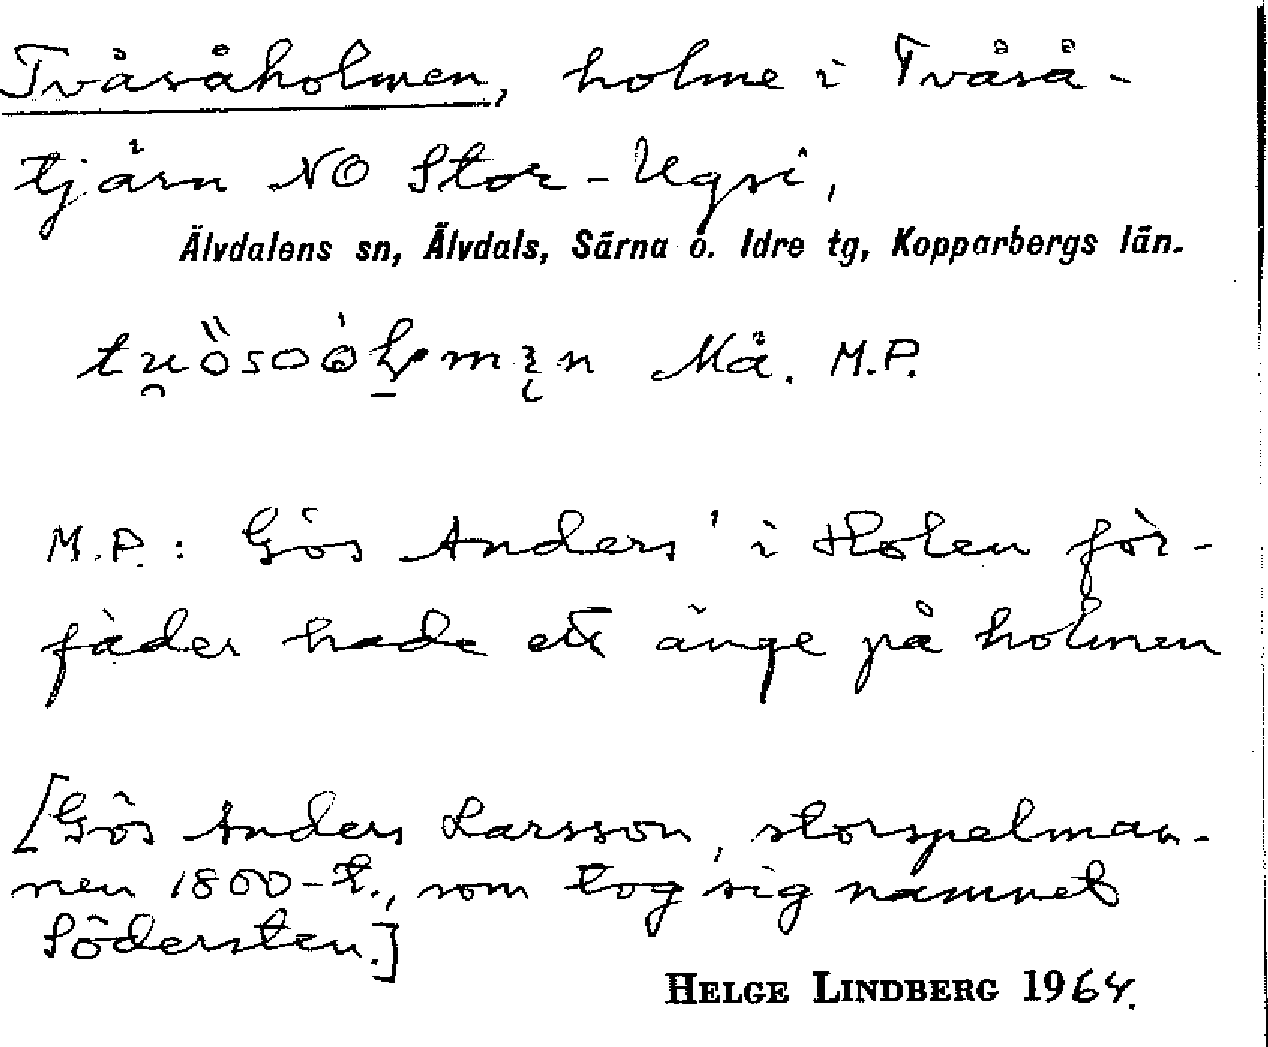 Tvåsåholmen, holme i Tvåså-
tjärn NO Stor-Ugsi,
Älvdalens sn, Älvdals, Särna o. Idre tg, Kopparbergs län.
Må. M.P.
M.P.: Gös Anders' i Holen för-
fäder hade ett änge på holmen
[Gös Anders Larsson, storspelman-
nen 1800-t., som tog sig namnet
Södersten.]
HELGE LINDBERG 1964.